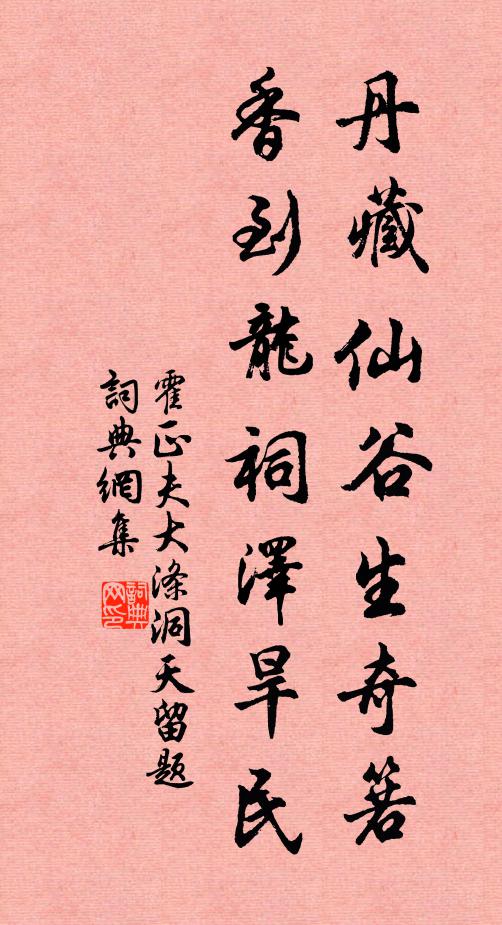 丹藏仙谷生奇箬
香到龍祠澤旱民
霍正夫大滌洞天留題
詞典網集
詞典網印